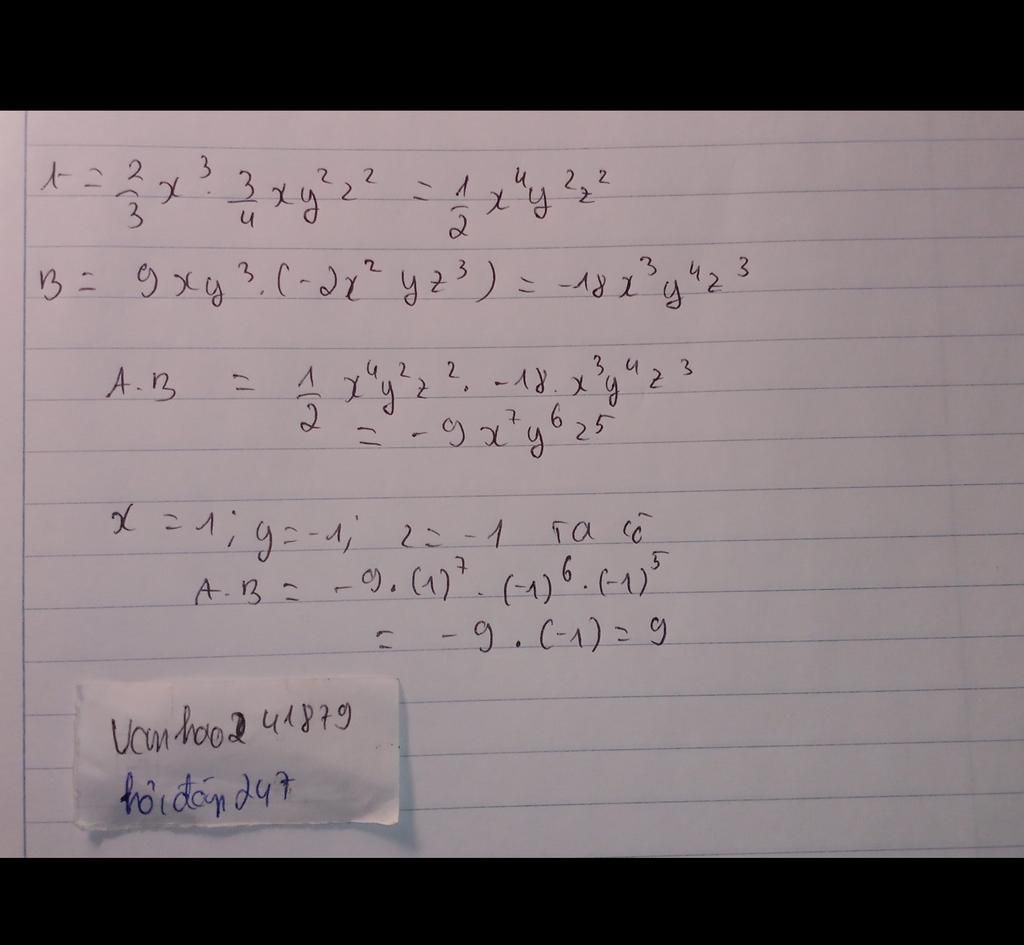 A = 2/3 x³ · 3/4 xy²z² = 1/2 x⁴y²z²
B = 9xy³.(-2x²yz³) = -18x³y⁴z³
A.B = 1/2 x⁴y²z². -18.x³y⁴z³
= -9x⁷y⁶z⁵
x = 1; y = -1; z = -1 ta có
A.B = -9.(1)⁷.(-1)⁶.(-1)⁵
= -9.(-1) = 9
Vanhao241879
hỏi đáp 247